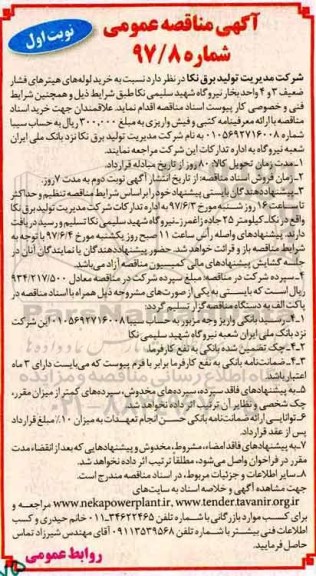 آگهی مناقصه عمومی
شماره ۹۷/۸
نوبت اول
شرکت مدیریت تولید برق نکا در نظر دارد نسبت به خرید لوله‌های هیترهای فشار
ضعیف ۳ و ۴ واحد بخار نیروگاه شهید سلیمی نکا طبق شرایط ذیل و همچنین شرایط
فنی و خصوصی کار پیوست اسناد مناقصه اقدام نماید. علاقمندان جهت خرید اسناد
مناقصه با ارائه معرفینامه کتبی و فیش واریزی به مبلغ ۳۰۰،۰۰۰ ریال به حساب سیبا
شماره ۰۱۰۵۶۹۲۷۱۶۰۰۸ به نام شرکت مدیریت تولید برق نکا نزد بانک ملی ایران
شعبه نیروگاه به اداره تدارکات این شرکت مراجعه نمایند.
۱-مدت زمان تحویل کالا: ۸۰ روز از تاریخ مبادله قرارداد.
۲-زمان فروش اسناد مناقصه: از تاریخ انتشار آگهی نوبت دوم به مدت ۷ روز.
۳-پیشنهاددهندگان بایستی پیشنهاد خود را براساس شرایط مناقصه تنظیم و حداکثر
تا ساعت ۱۶ روز شنبه مورخ ۹۷/۶/۳ به اداره تدارکات شرکت مدیریت تولید برق نکا
واقع در نکا-کیلومتر ۲۵ جاده زاغمرز-نیروگاه شهید سلیمی نکا تسلیم و رسید دریافت
دارند. پیشنهادهای واصله رأس ساعت ۱۱ صبح روز یکشنبه مورخ ۹۷/۶/۴ با توجه به
شرایط مناقصه باز و قرائت خواهد شد. حضور پیشنهاددهندگان یا نمایندگان آنان در
جلسه گشایش پیشنهادهای مالی کمیسیون مناقصه آزاد می‌باشد.
۴-سپرده شرکت در مناقصه: مبلغ سپرده شرکت در مناقصه معادل ۹۳۴/۲۱۷/۵۰۰
ریال است که بایستی به یکی از صورت‌های مشروحه ذیل همراه با اسناد مناقصه در
پاکت الف به دستگاه مناقصه گزار تسلیم گردد
رسید بانکی واریز وجه مزبور به حساب سیبا ۰۱۰۵۶۹۲۷۱۶۰۰۸ این شرکت
نزد بانک ملی ایران شعبه نیروگاه شهید سلیمی نکا
چک تضمین شده بانکی به نفع کارفرما.
۳-۴-ضمانت‌نامه بانکی به نفع کارفرما برابر با فرم پیوست که می‌بایست دارای ۳ ماه
اعتبار باشد.
۵-به پیشنهادهای فاقد سپرده، سپرده‌های مخدوش، سپرده‌های کمتر از میزان مقرر،
چک شخصی و نظایر آن ترتیب اثر داده نخواهد شد.
۶-توانایی ارائه ضمانت‌نامه بانکی حسن انجام تعهدات به میزان ۱۰٪ مبلغ قرارداد
پس از عقد قرارداد.
۷-به پیشنهادهای فاقد امضاء، مشروط، مخدوش و پیشنهادهایی که بعد از انقضاء مدت
مقرر در فراخوان واصل می‌شود، مطلقاً ترتیب اثر داده نخواهد شد.
۸-سایر اطلاعات و جزئیات مربوط، در اسناد مناقصه مندرج است.
جهت مشاهده آگهی و خلاصه اسناد به سایت‌های
www.nekapowerplant.ir، www.tender.tavanir.org.ir مراجعه و
برای کسب موارد بازرگانی با شماره تلفن ۳۴۶۲۲۴۶۵-۰۱۱ خانم حیدری و کسب
اطلاعات فنی بیشتر با شماره تلفن ۰۹۱۱۳۵۳۹۵۶۸ آقای مهندس شیرزاد تماس
حاصل فرمایید.
روابط عمومی